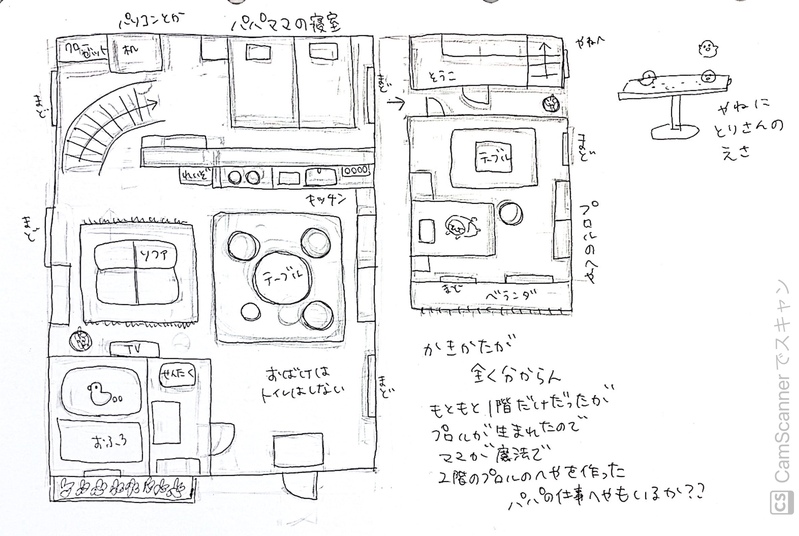 パソコンとか
パパママの寝室
クロ
ゼット
机
まど
まど
そうこ
やねへ
まど
テーブル
れいぞ
キッチン
まど
ソファ
テーブル
プロルのへや
まど
ベランダ
TV
せんたく
おふろ
おばけは
トイレはしない
まど
やねに
とりさんの
えさ
かきかたが
全く分からん
もともと1階だけだったが
プロルが生まれたので
ママが魔法で
2階のプロルのへやを作った
パパの仕事へやもいるか??
CS CamScannerでスキャン